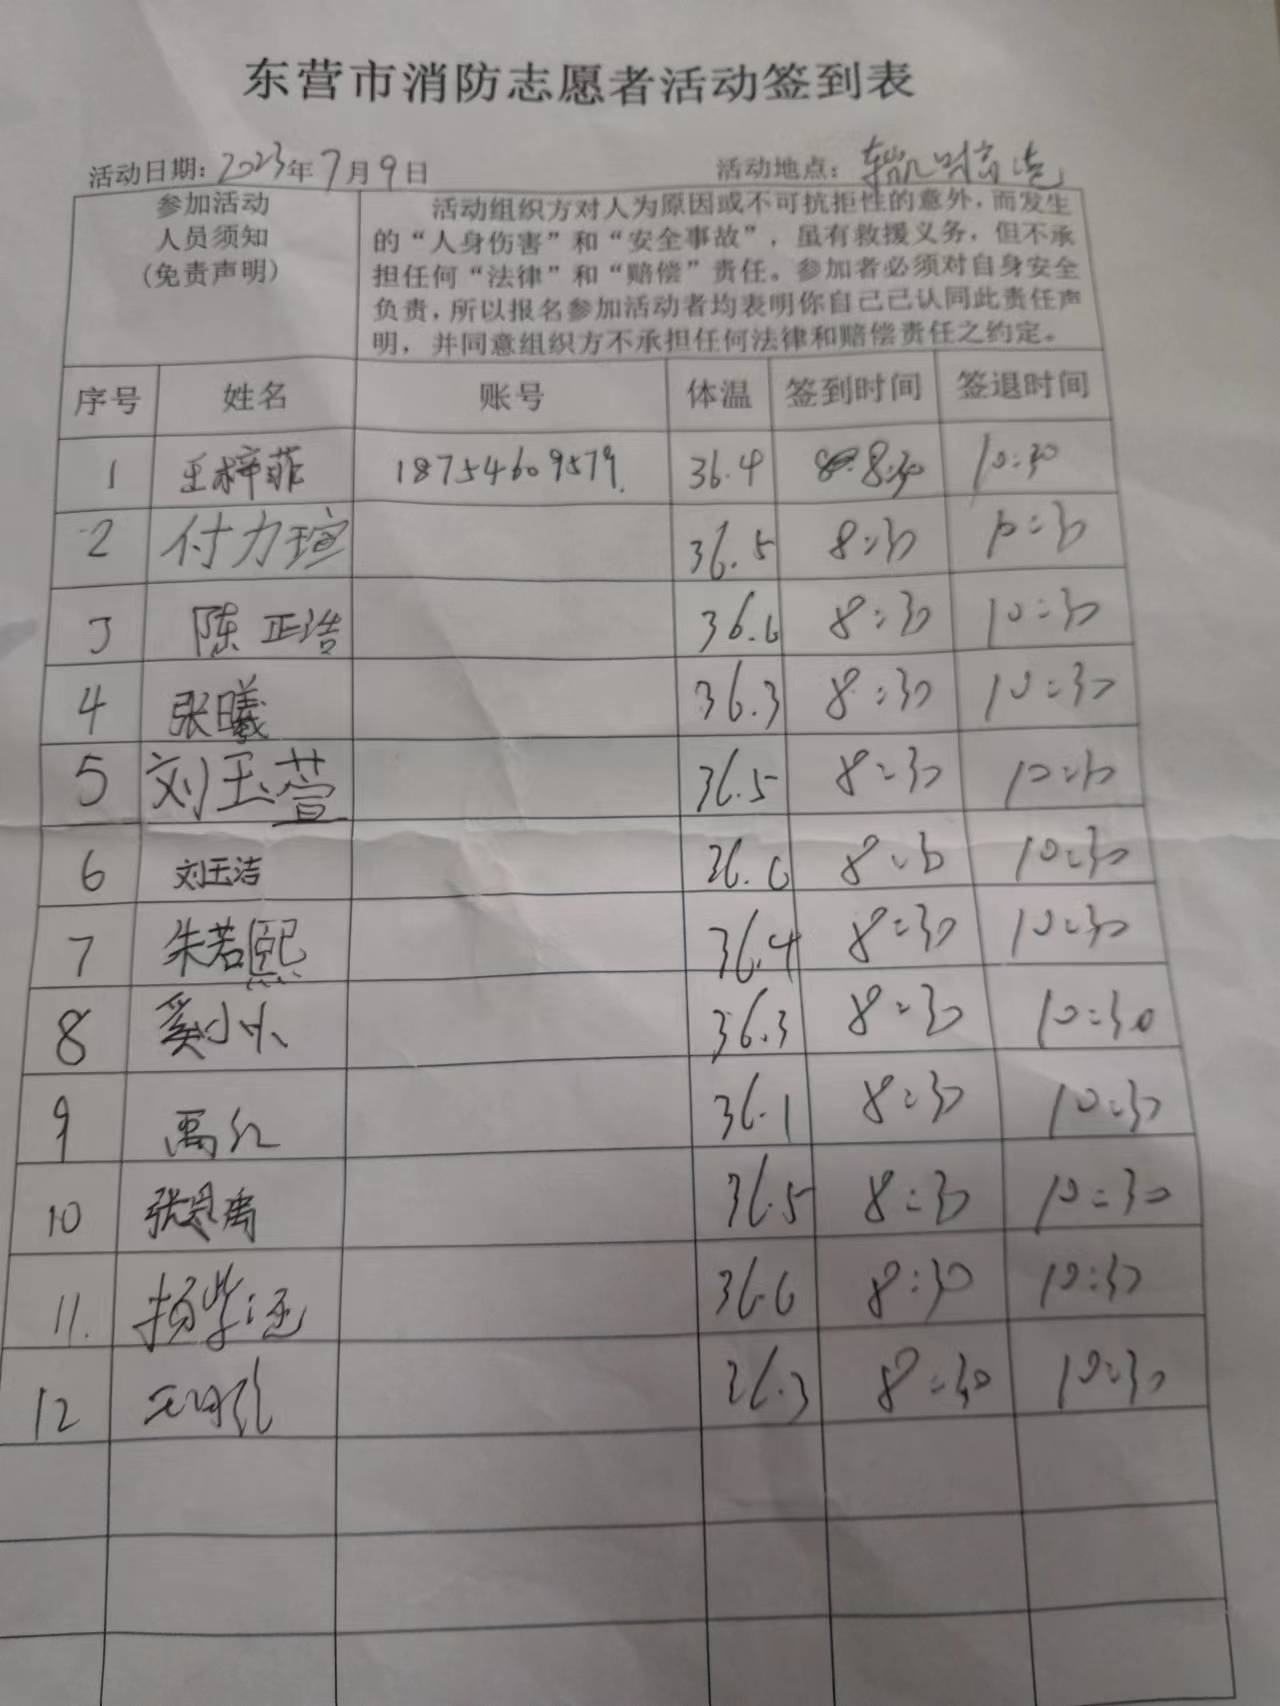 东营市消防志愿者活动签到表
活动日期：2023年7月9日 活动地点：
参加活动
人员须知
(免责声明)
活动组织方对人为原因或不可抗拒性的意外，而发生
的“人身伤害”和“安全事故”，虽有救援义务，但不承
担任何“法律”和“赔偿”责任。参加者必须对自身安全
负责，所以报名参加活动者均表明你自己己认同此责任声
明，并同意组织方不承担任何法律和赔偿责任之约定。
序号 姓名 账号 体温 签到时间 签退时间
1 王梓菲 18754609579. 36.4 8:30 10:30
2 付力瑄 36.5 8:30 10:30
3 陈正浩 36.6 8:30 10:30
4 张曦 36.3 8:30 10:30
5 刘玉萱 36.5 8:30 10:30
6 刘玉洁 36.6 8:30 10:30
7 朱若熙 36.4 8:30 10:30
8 奚小 36.3 8:30 10:30
9 禹红 36.1 8:30 10:30
10 张恩禹 36.5 8:30 10:30
11. 杨紫涵 36.6 8:30 10:30
12 36.3 8:30 10:30